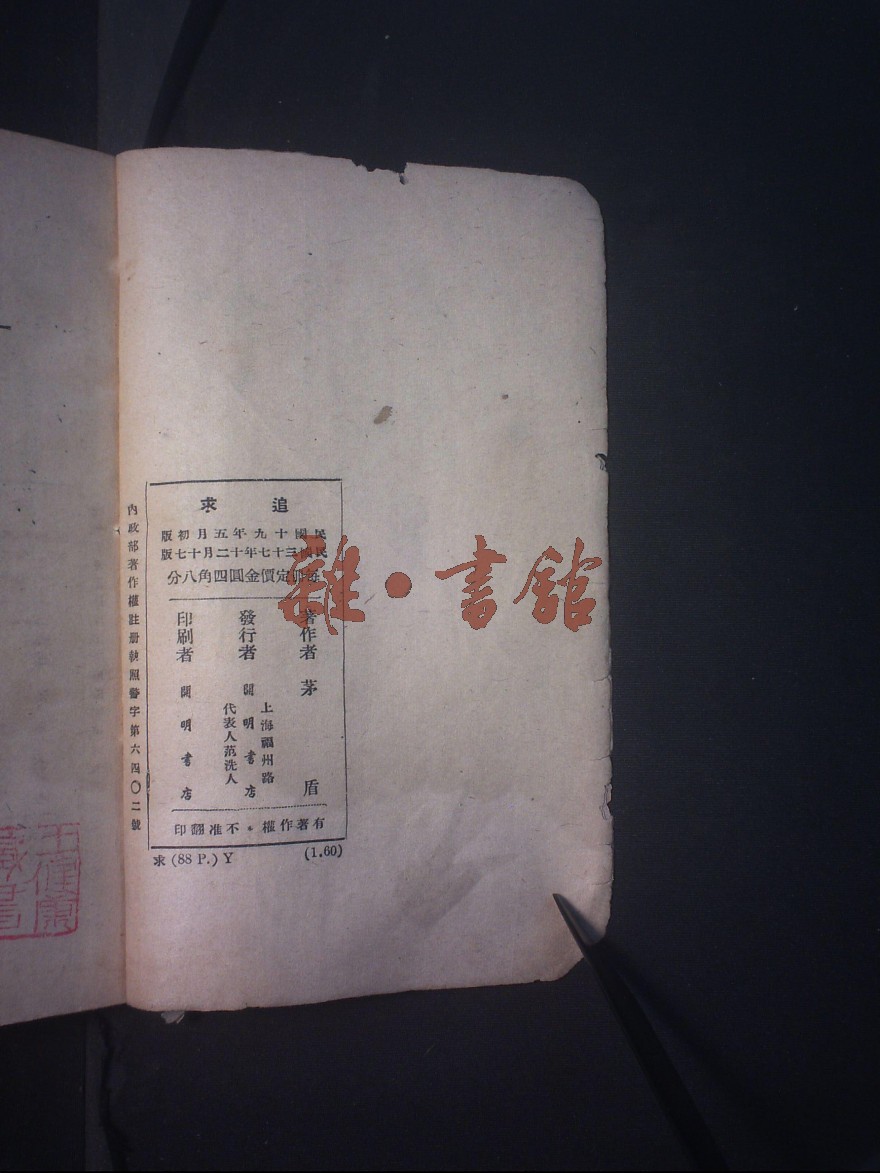 追求
民國十九年五月初版
民國三十七年十二月十七版
每冊定價金圓四角八分
著作者 茅盾
發行者 開明書店
上海福州路
代表人范洗人
印刷者 開明書店
有著作權・不准翻印
求(88 P.) Y (1.60)
內政部著作權註册執照警字第六四〇二號
雜・書館